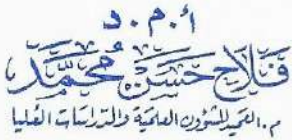 أ . م . د
فَلَاح حَسَن مُحَمَّد
م . العميد للشؤون العلمية والدراسات العُليا